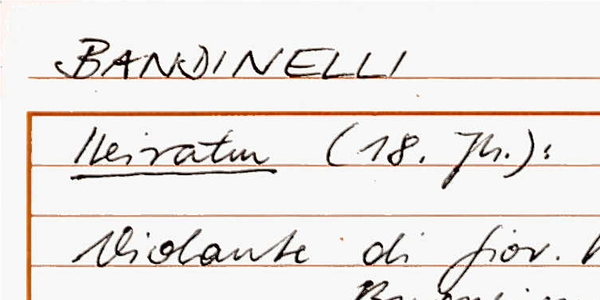 BANDINELLI
Heiraten (18. Jh.):
Violante di Giov.